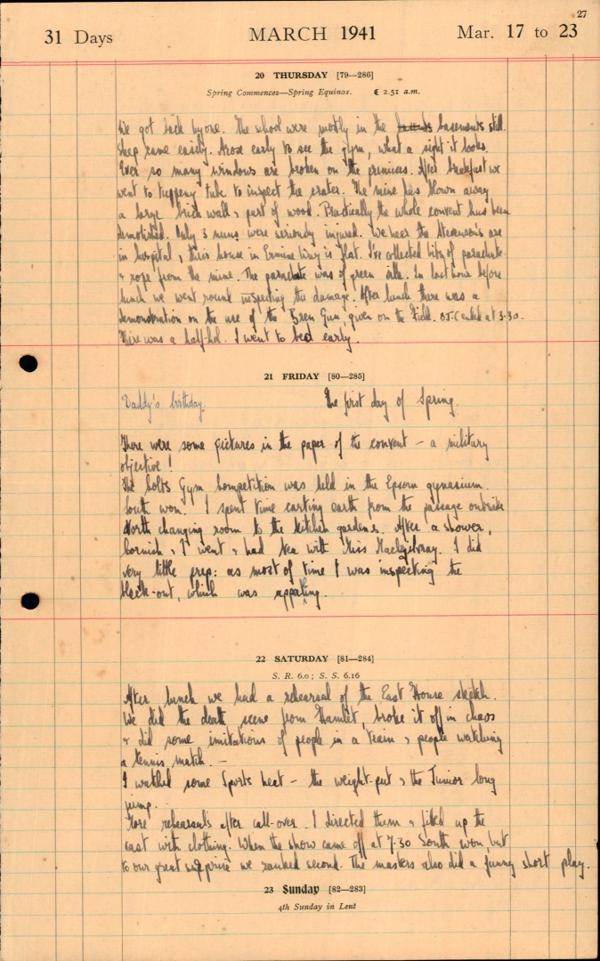 27
31 Days MARCH 1941 Mar. 17 to 23
20 THURSDAY [79—286]
Spring Commences—Spring Equinox. ☾ 2.51 a.m.
We got back by one. The school were mostly in the basements still.
Sleep came easily. Arose early to see the gym, what a sight it looks.
Ever so many windows are broken on the premises. After breakfast we
went to tuppeny tube to inspect the crater. The mine has blown away
a large brick wall & part of wood. Practically the whole convent has been
demolished. Only 3 nuns were seriously injured. We hear the are
in hospital, their house in Ermine Way is flat. I've collected bits of parachute
& rope from the mine. The parachute was of green silk. In last hour before
lunch we went round inspecting the damage. After lunch there was a
demonstration on the use of the Bren Gun, given on the Field. OTC ended at 3.30.
There was a half-hol. I went to bed early.
21 FRIDAY [80—285]
Daddy's birthday. The first day of Spring.
There were some pictures in the paper of the convent – a military
objective!
The bolts Gym Competition was held in the Epsom gymnasium.
South won. I spent time carting earth from the passage outside
North changing room to the kitchen gardens. After a shower,
Cornish & I went & had tea with Miss. I did
very little prep: as most of time I was inspecting the
black-out, which was appalling.
22 SATURDAY [81—284]
S. R. 6.0; S. S. 6.16
After lunch we had a rehearsal of the East House sketch.
We did the death scene from Hamlet, broke it off in chaos
& did some imitations of people in a train & people watching
a tennis match. –
I watched some Sports heat – the weight-put & the Junior long
jump.
More rehearsals after call-over. I directed them & fitted up the
cast with clothing. When the show came off at 7.30 South won, but
to our great surprise we ranked second. The masters also did a funny short play.
23 Sunday [82—283]
4th Sunday in Lent